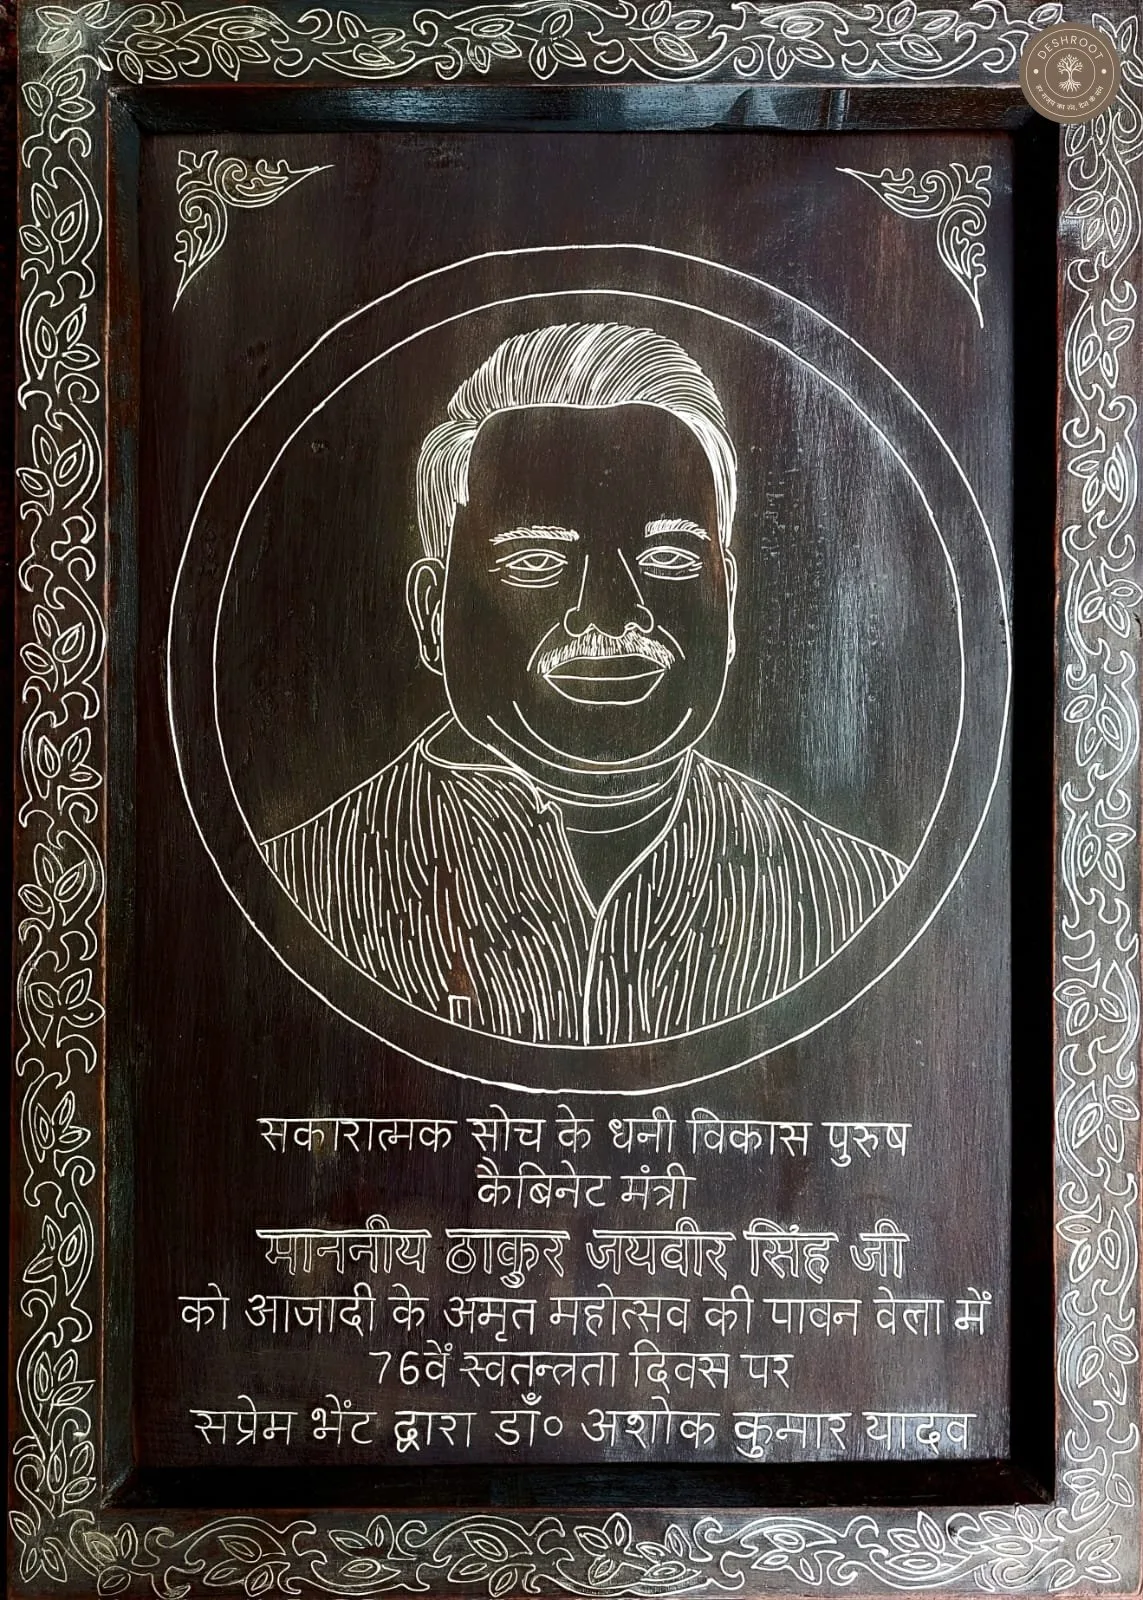 DESHROOT
सकारात्मक सोच के धनी विकास पुरुष
कैबिनेट मंत्री
माननीय ठाकुर जयवीर सिंह जी
को आजादी के अमृत महोत्सव की पावन वेला में
76वें स्वतन्त्रता दिवस पर
सप्रेम भेंट द्वारा डॉ॰ अशोक कुमार यादव